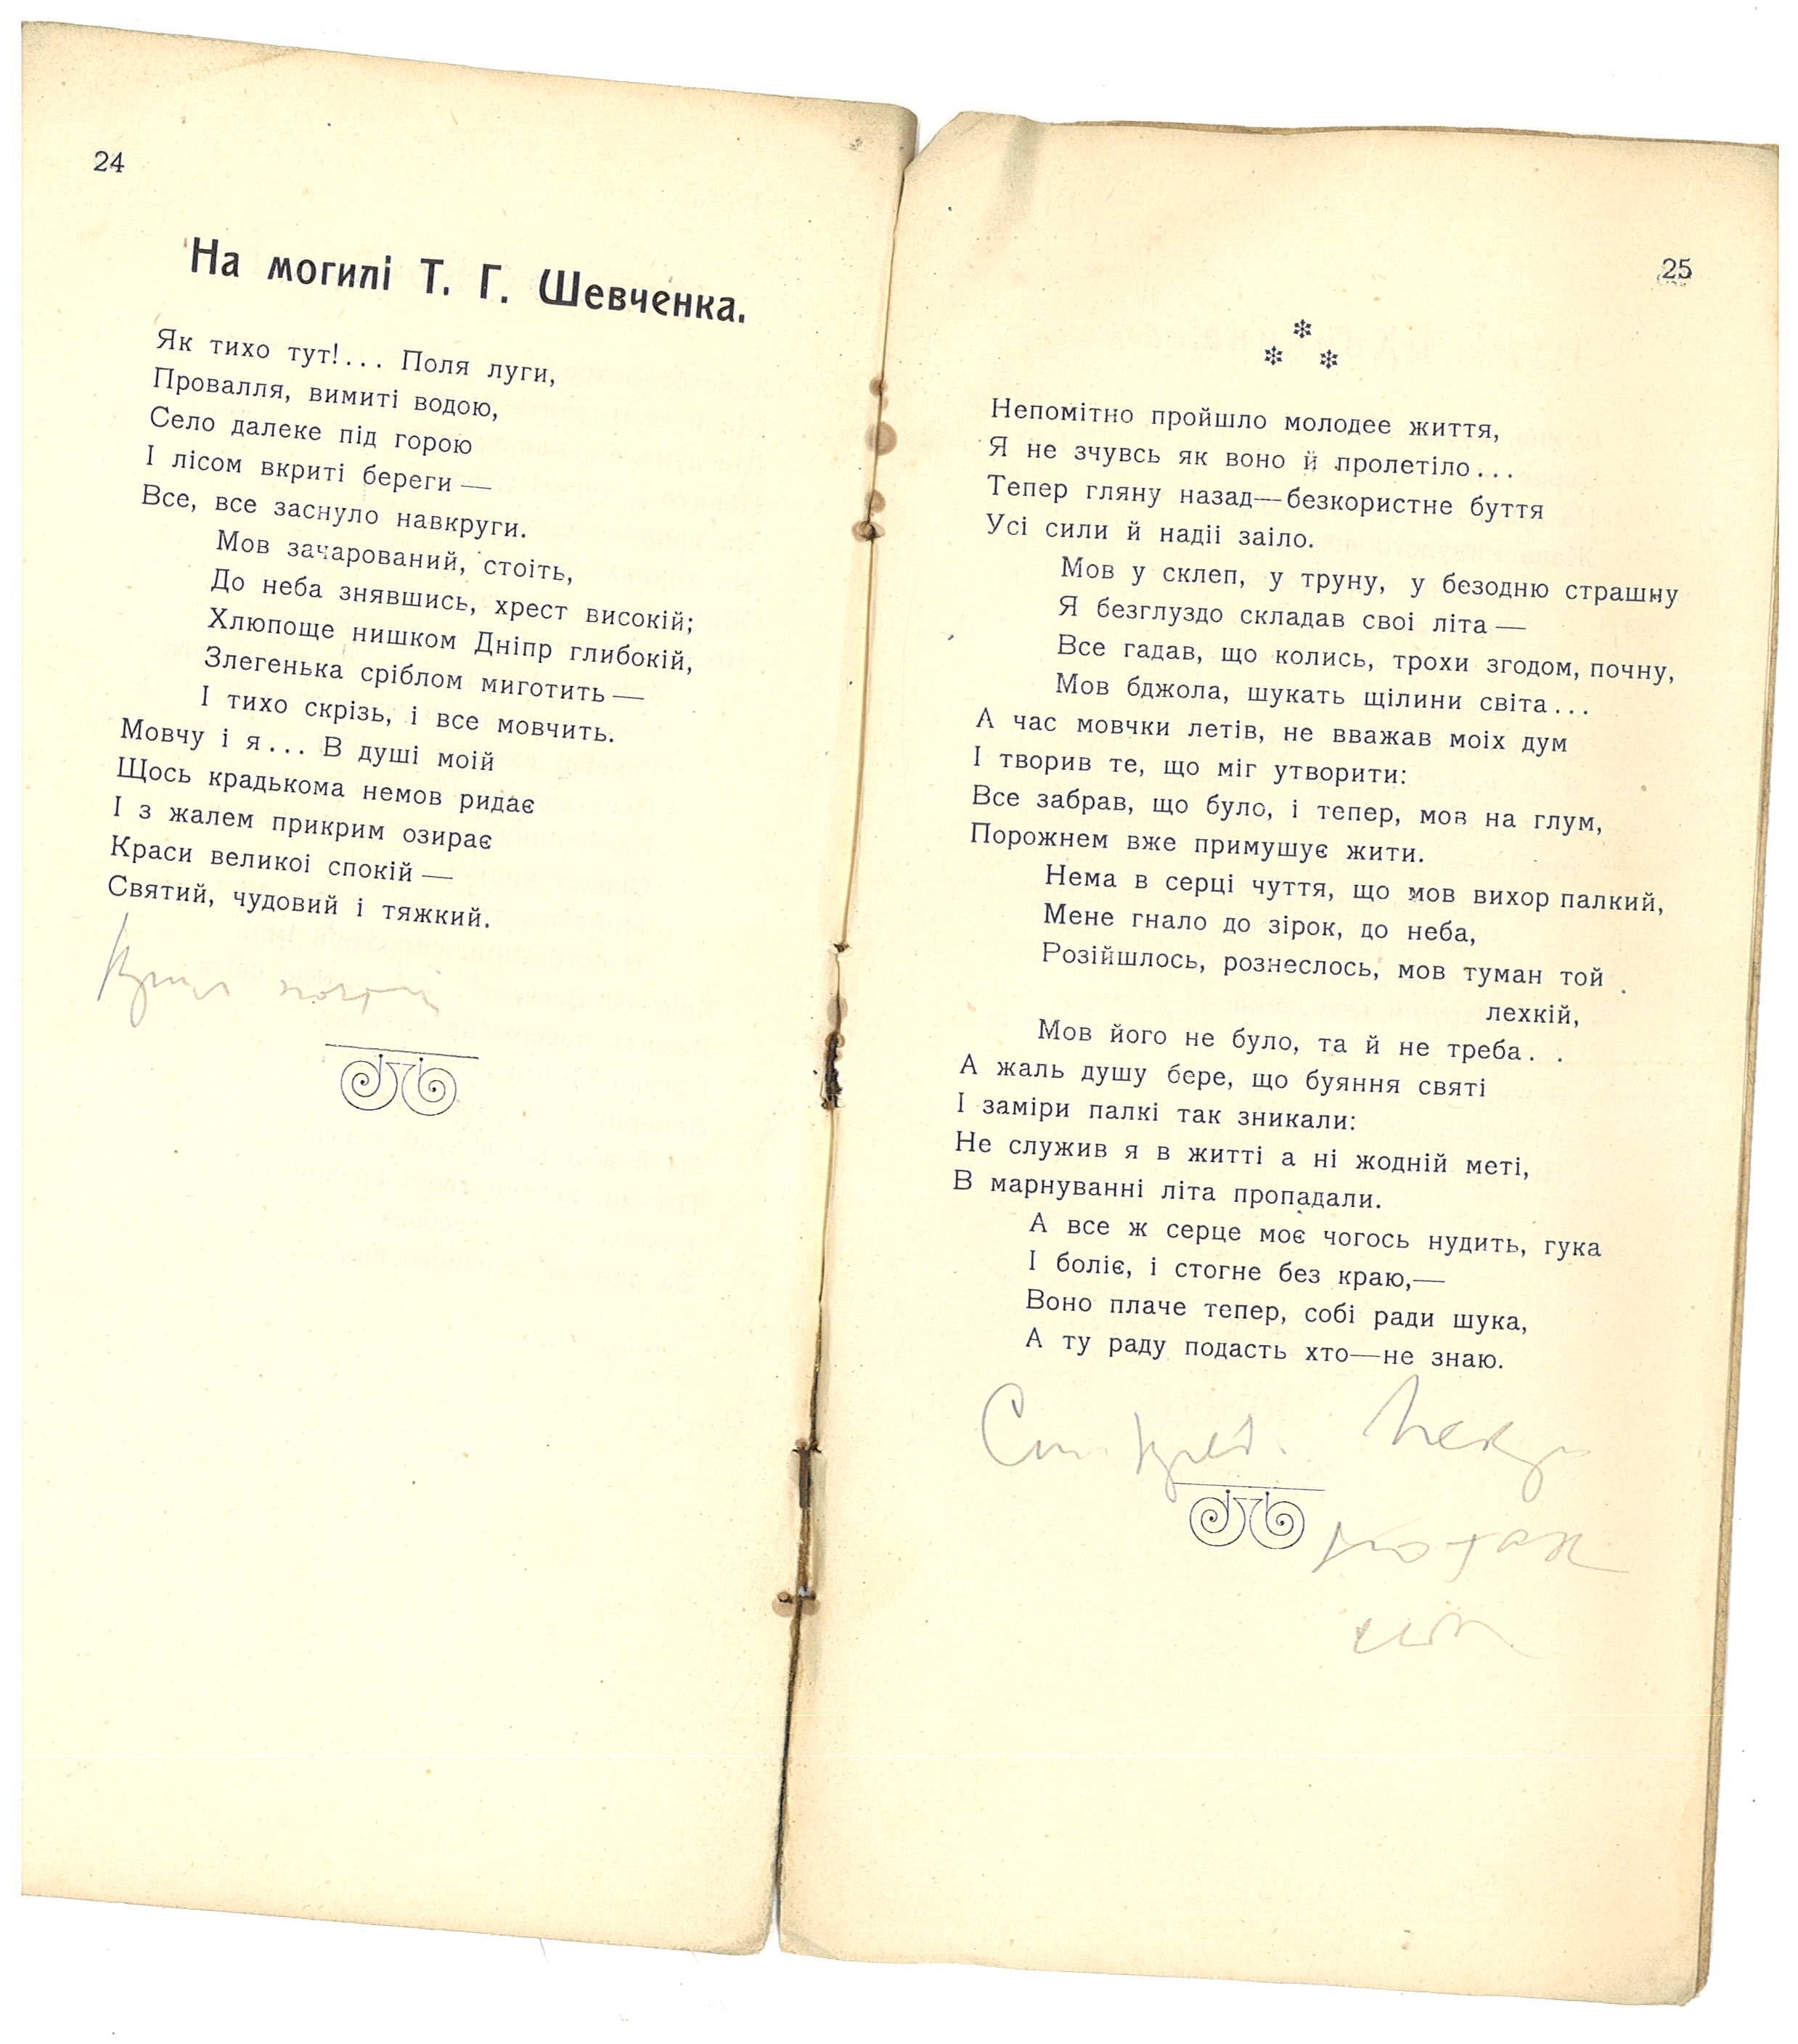 24
На могилі Т. Г. Шевченка.
Як тихо тут!... Поля луги,
Провалля, вимиті водою,
Село далеке під горою
І лісом вкриті береги —
Все, все заснуло навкруги.
Мов зачарований, стоіть,
До неба знявшись, хрест високій;
Хлюпоще нишком Дніпр глибокій,
Злегенька сріблом миготить —
І тихо скрізь, і все мовчить.
Мовчу і я... В душі моій
Щось крадькома немов ридає
І з жалем прикрим озирає
Краси великоі спокій —
Святий, чудовий і тяжкий.
25
Непомітно пройшло молодее життя,
Я не зчувсь як воно й пролетіло...
Тепер гляну назад—безкористне буття
Усі сили й надіі заіло.
Мов у склеп, у труну, у безодню страшну
Я безглуздо складав своі літа —
Все гадав, що колись, трохи згодом, почну,
Мов бджола, шукать щілини світа...
А час мовчки летів, не вважав моіх дум
І творив те, що міг утворити:
Все забрав, що було, і тепер, мов на глум,
Порожнем вже примушує жити.
Нема в серці чуття, що мов вихор палкий,
Мене гнало до зірок, до неба,
Розійшлось, рознеслось, мов туман той
лехкій,
Мов його не було, та й не треба. .
А жаль душу бере, що буяння святі
І заміри палкі так зникали:
Не служив я в житті а ні жодній меті,
В марнуванні літа пропадали.
А все ж серце моє чогось нудить, гука
І боліє, і стогне без краю,—
Воно плаче тепер, собі ради шука,
А ту раду подасть хто—не знаю.